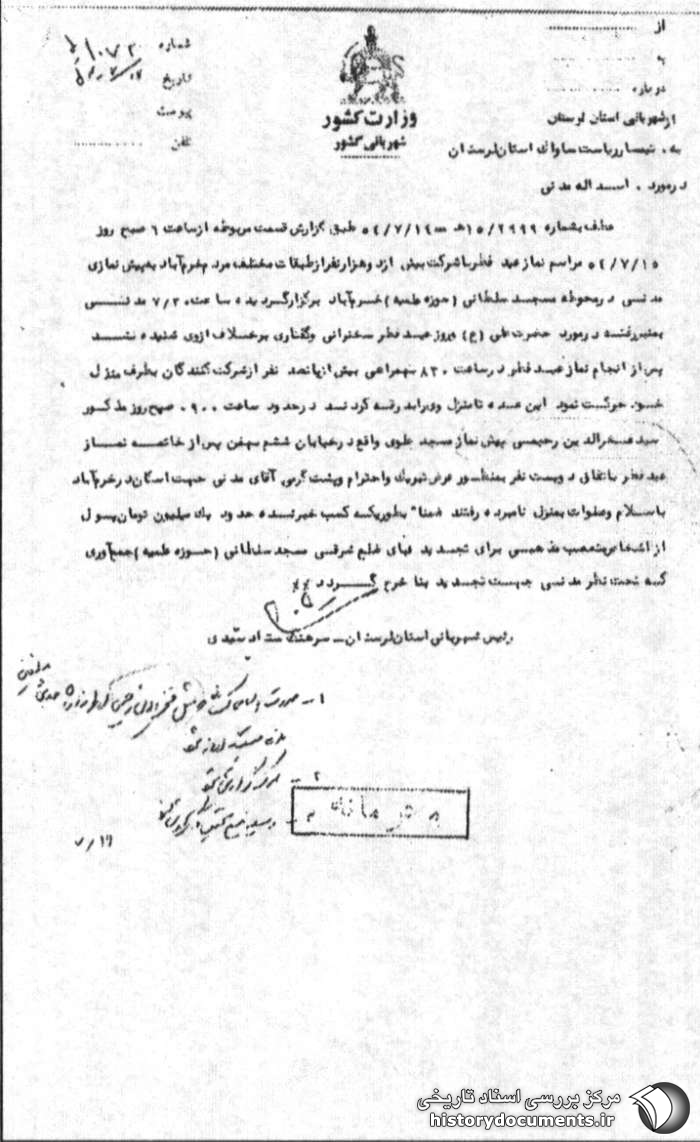 از ..............
به ..............
درباره ..............
شماره ۱۰۷۲
تاریخ
پیوست
تلفن ..............
وزارت کشور
شهربانی کشور
از شهربانی استان لرستان
به . تیمسار ریاست ساواک استان لرستان
در مورد . اسداله مدنی
عطف بشماره ۱۵/۲۹۹۹ هـ ـ ۵۲/۷/۱۴ طبق گزارش قسمت مربوطه از ساعت ۶ صبح روز
۵۲/۷/۱۵ مراسم نماز عید فطر با شرکت بیش از دو هزار نفر از طبقات مختلف مردم خرم‌آباد به پیش نمازی
مدنی در محوطه مسجد سلطانی (حوزه علمیه) خرم‌آباد برگزار گردیده ساعت ۷/۳۰ مدنی
بمنبر رفته در مورد حضرت علی (ع) و روز عید فطر سخنرانی و گفتاری بر خلاف از وی شنیده نشد
پس از انجام نماز عید فطر در ساعت ۸۳۰ بهمراهی بیش از پانصد نفر از شرکت کنندگان بطرف منزل
خود حرکت نمود این عده تا منزل وی را بدرقه کردند در حدود ساعت ۹۰۰ صبح روز مذکور
سید فخرالدین رحیمی پیش نماز مسجد علوی واقع در خیابان ششم بهمن پس از خاتمه نماز
عید فطر باتفاق دویست نفر بمنظور عرض تبریک و احترام و پشت گرمی آقای مدنی جهت اسکان در خرم‌آباد
با سلام و صلوات بمنزل نامبرده رفتند ضمنا" بطوریکه کسب خبر شده حدود یک میلیون تومان پول
از اشخاص متعصب مذهبی برای تجدید بنای ضلع شرقی مسجد سلطانی (حوزه علمیه) جمع‌آوری
که تحت نظر مدنی جهت تجدید بنا خرج گردد
رئیس شهربانی استان لرستان ـ سرهنگ ستاد سیدی
۱ـ
۲ـ
۳ـ
۷/۱۷
مرکز بررسی اسناد تاریخی
historydocuments.ir